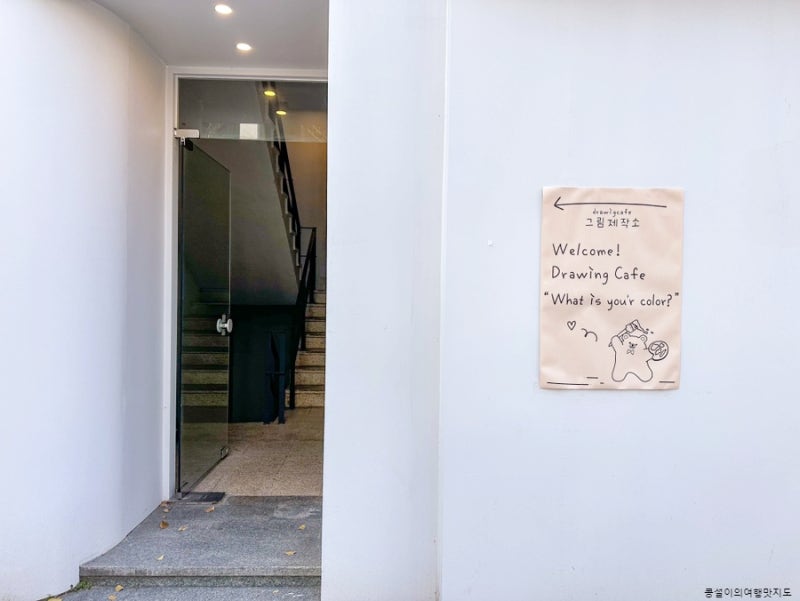 drawigcafe
그림제작소
Welcome!
Drawing Cafe
"What is you'r color?"
콩설이의여행맛지도